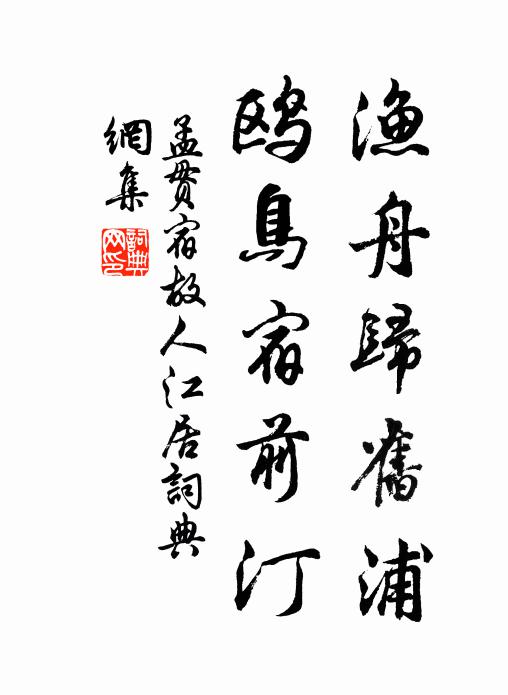 漁舟歸舊浦
鷗鳥宿前汀
孟貫宿故人江居詞典
網集
詞典
網印